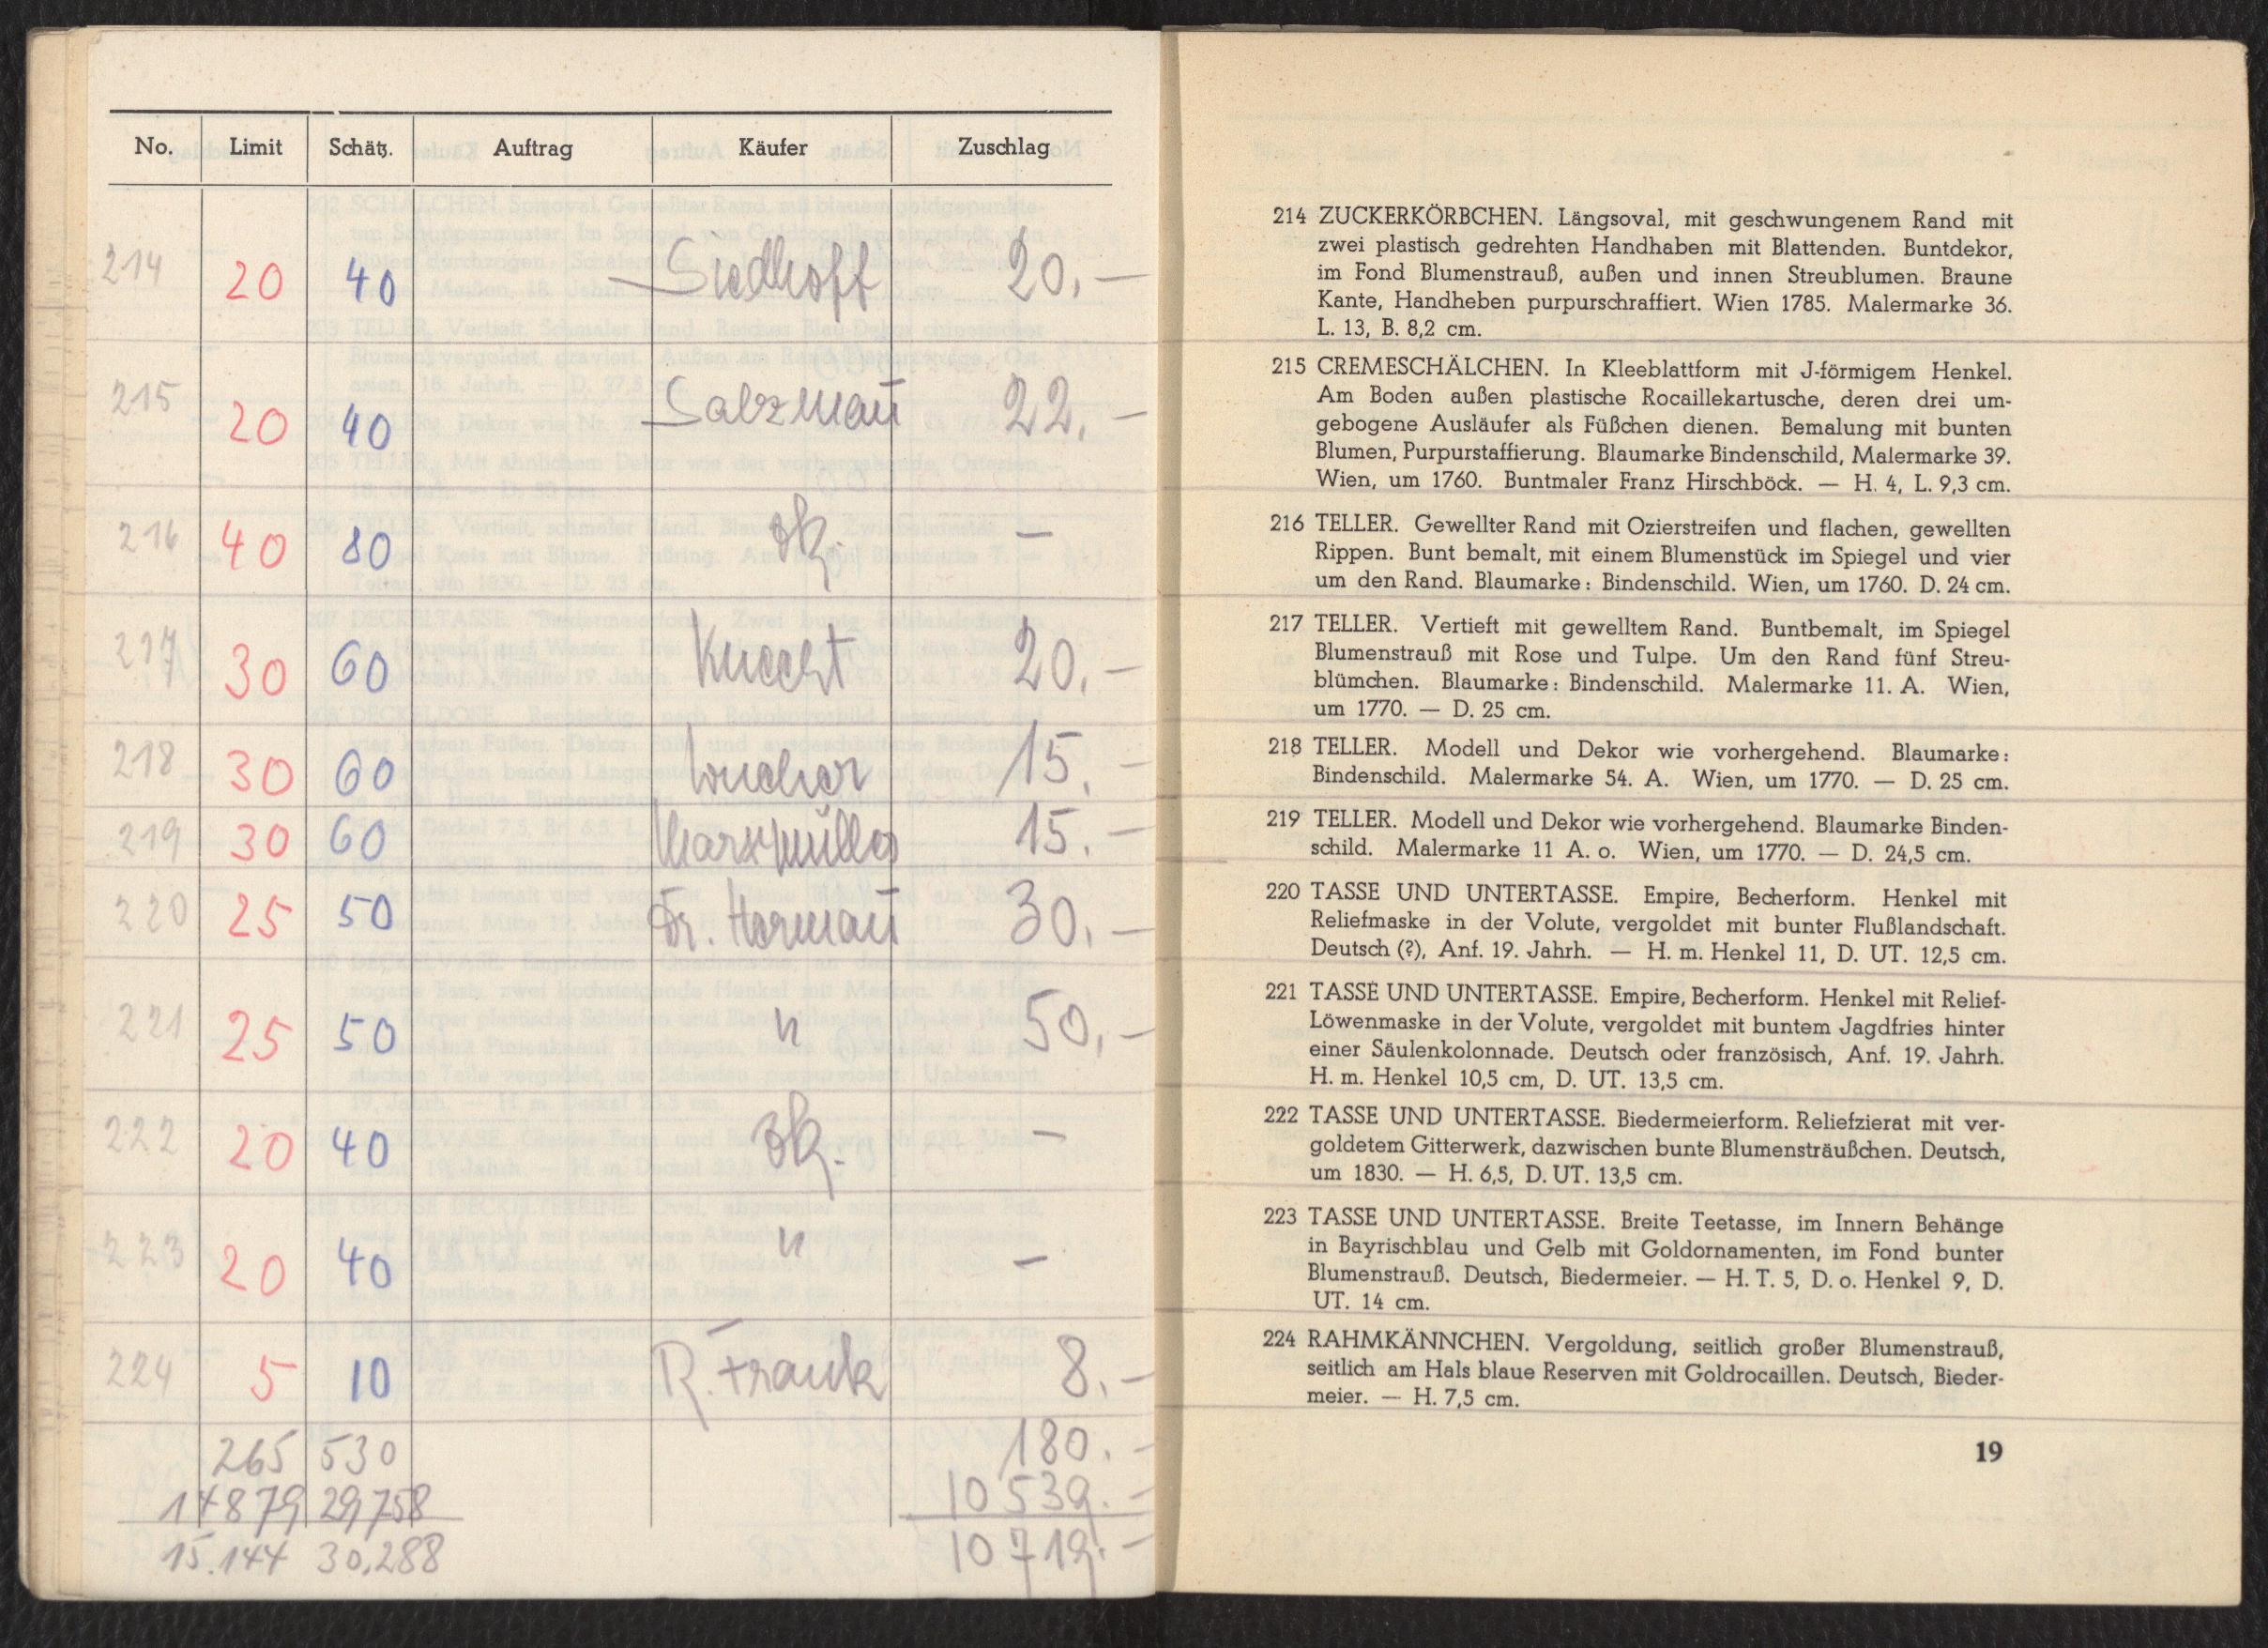 No. Limit Schätz. Auftrag Käufer Zuschlag
214 20 40 Siedhoff 20.—
215 20 40 Salzmañ 22.—
216 40 80 zk. —
217 30 60 Knecht 20.—
218 30 60 15.—
219 30 60 15.—
220 25 50 Dr. Hermañ 30.—
221 25 50 " 50.—
222 20 40 zk. —
223 20 40 " —
224 5 10 R. Frank 8.—
265 530 180.—
14879 29,758 10539.—
15.144 30,288 10719.—
214 ZUCKERKÖRBCHEN. Längsoval, mit geschwungenem Rand mit
zwei plastisch gedrehten Handhaben mit Blattenden. Buntdekor,
im Fond Blumenstrauß, außen und innen Streublumen. Braune
Kante, Handheben purpurschraffiert. Wien 1785. Malermarke 36.
L. 13, B. 8,2 cm.
215 CREMESCHÄLCHEN. In Kleeblattform mit J-förmigem Henkel.
Am Boden außen plastische Rocaillekartusche, deren drei um-
gebogene Ausläufer als Füßchen dienen. Bemalung mit bunten
Blumen, Purpurstaffierung. Blaumarke Bindenschild, Malermarke 39.
Wien, um 1760. Buntmaler Franz Hirschböck. — H. 4, L. 9,3 cm.
216 TELLER. Gewellter Rand mit Ozierstreifen und flachen, gewellten
Rippen. Bunt bemalt, mit einem Blumenstück im Spiegel und vier
um den Rand. Blaumarke: Bindenschild. Wien, um 1760. D. 24 cm.
217 TELLER. Vertieft mit gewelltem Rand. Buntbemalt, im Spiegel
Blumenstrauß mit Rose und Tulpe. Um den Rand fünf Streu-
blümchen. Blaumarke: Bindenschild. Malermarke 11. A. Wien,
um 1770. — D. 25 cm.
218 TELLER. Modell und Dekor wie vorhergehend. Blaumarke:
Bindenschild. Malermarke 54. A. Wien, um 1770. — D. 25 cm.
219 TELLER. Modell und Dekor wie vorhergehend. Blaumarke Binden-
schild. Malermarke 11 A. o. Wien, um 1770. — D. 24,5 cm.
220 TASSE UND UNTERTASSE. Empire, Becherform. Henkel mit
Reliefmaske in der Volute, vergoldet mit bunter Flußlandschaft.
Deutsch (?), Anf. 19. Jahrh. — H. m. Henkel 11, D. UT. 12,5 cm.
221 TASSE UND UNTERTASSE. Empire, Becherform. Henkel mit Relief-
Löwenmaske in der Volute, vergoldet mit buntem Jagdfries hinter
einer Säulenkolonnade. Deutsch oder französisch, Anf. 19. Jahrh.
H. m. Henkel 10,5 cm, D. UT. 13,5 cm.
222 TASSE UND UNTERTASSE. Biedermeierform. Reliefzierat mit ver-
goldetem Gitterwerk, dazwischen bunte Blumensträußchen. Deutsch,
um 1830. — H. 6,5, D. UT. 13,5 cm.
223 TASSE UND UNTERTASSE. Breite Teetasse, im Innern Behänge
in Bayrischblau und Gelb mit Goldornamenten, im Fond bunter
Blumenstrauß. Deutsch, Biedermeier. — H. T. 5, D. o. Henkel 9, D.
UT. 14 cm.
224 RAHMKÄNNCHEN. Vergoldung, seitlich großer Blumenstrauß,
seitlich am Hals blaue Reserven mit Goldrocaillen. Deutsch, Bieder-
meier. — H. 7,5 cm.
19